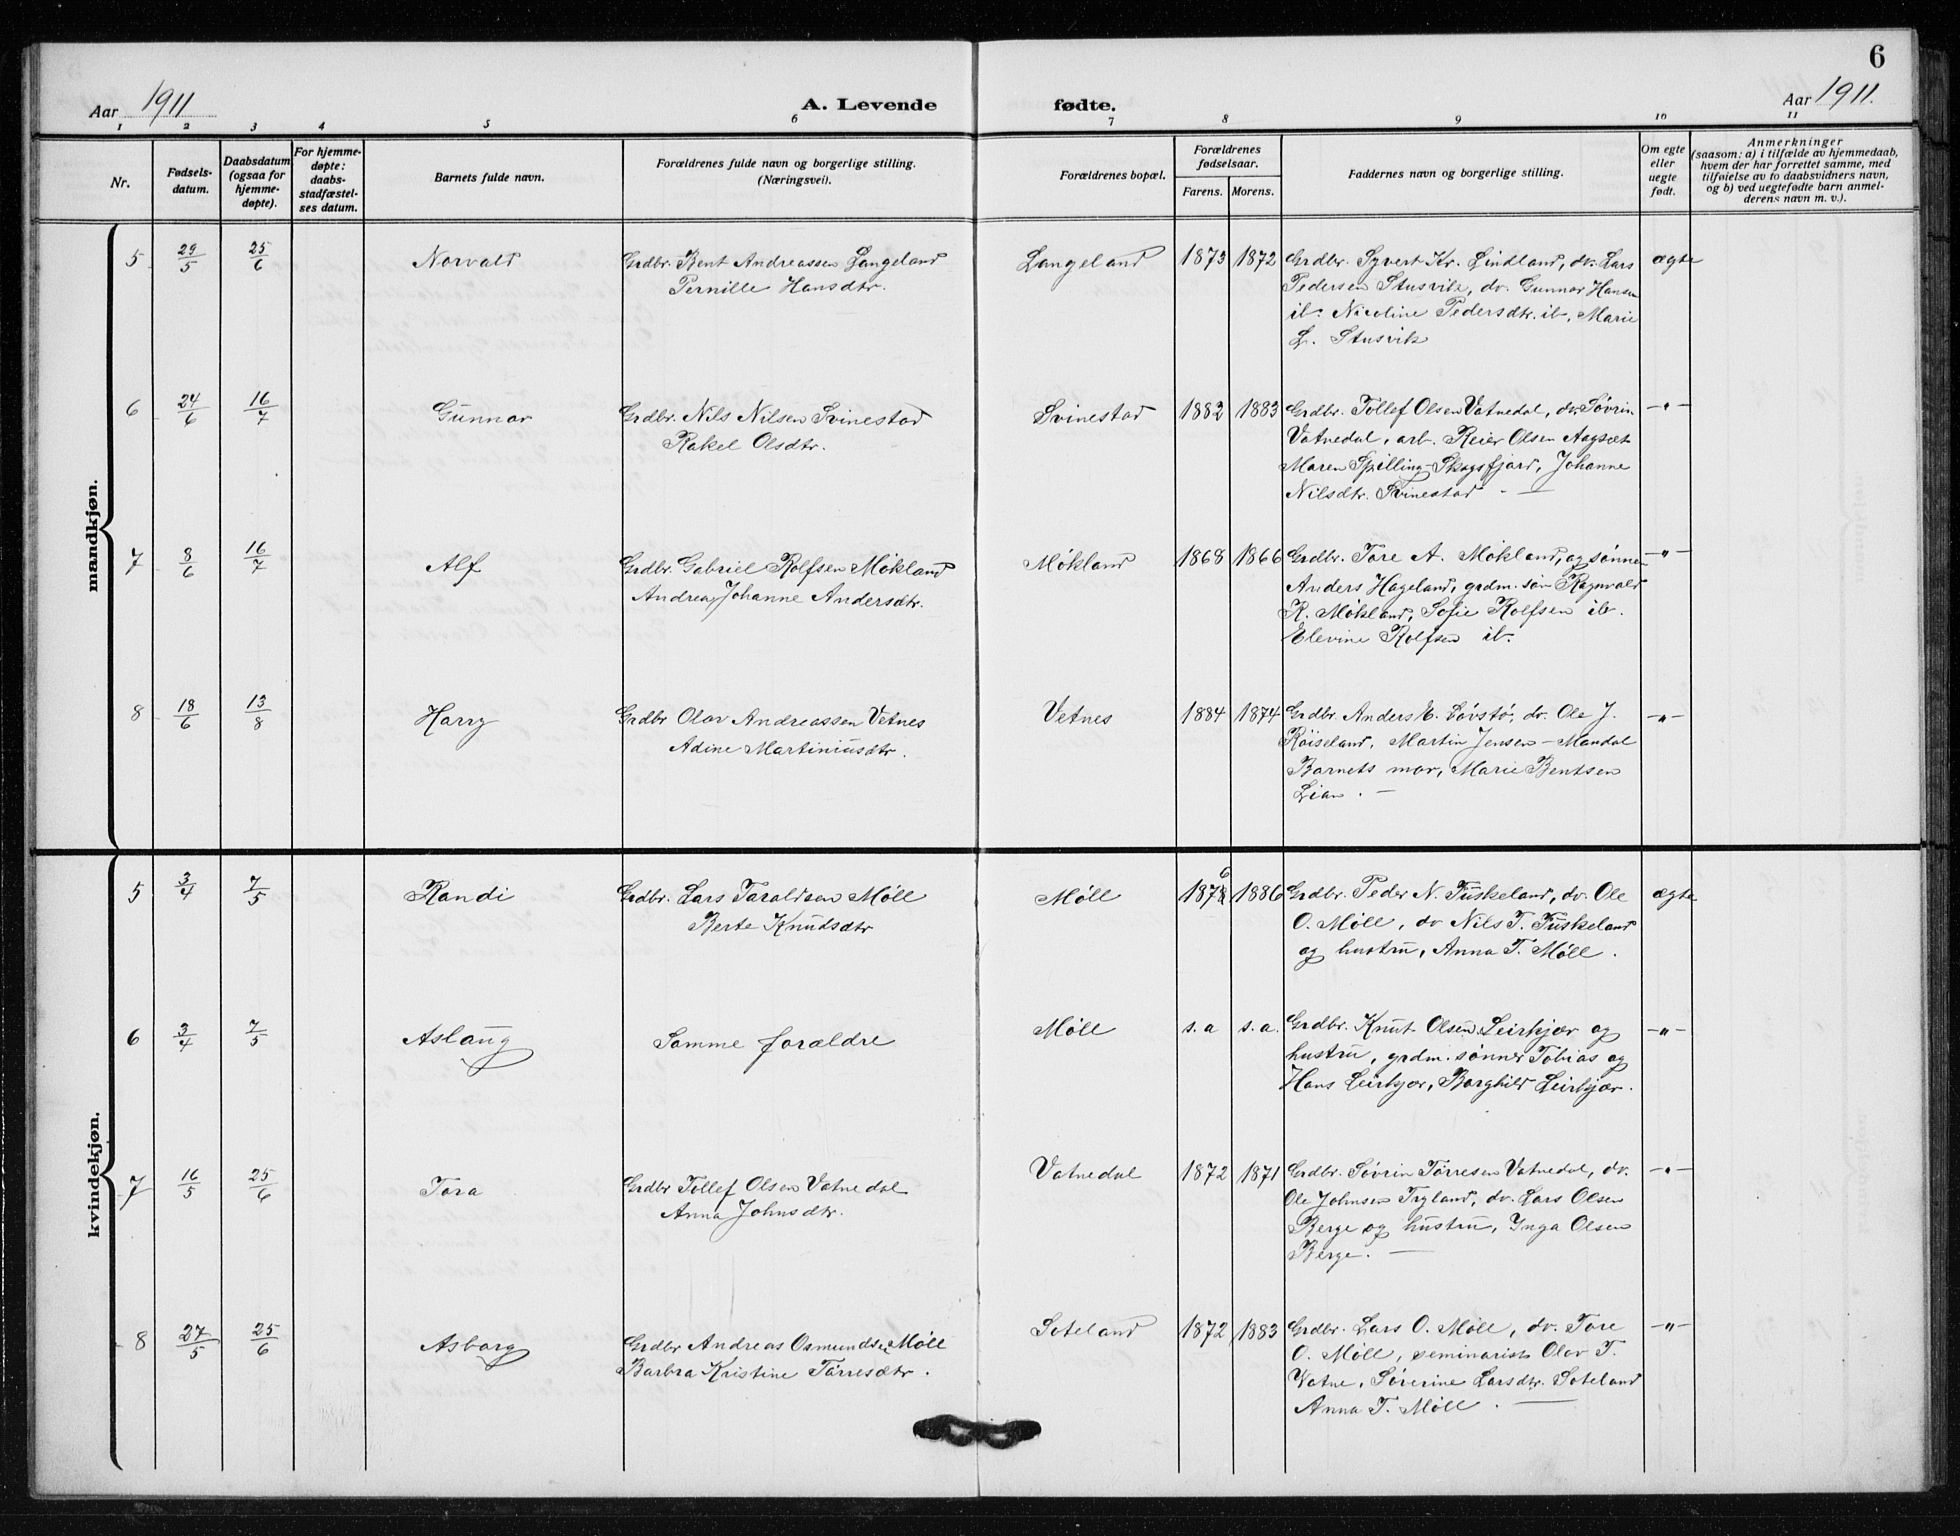 6
Aar 1911 A. Levende fødte. Aar 1911.
1 2 3 4 5 6 7 8 9 10 11
Nr.
Fødsels-
datum.
Daabsdatum
(ogsaa for
hjemme-
døpte).
For hjemme-
døpte:
daabs-
stadfæstel-
ses datum.
Barnets fulde navn.
Forældrenes fulde navn og borgerlige stilling.
(Næringsvei.)
Forældrenes bopæl.
Forældrenes
fødselsaar.
Farens. Morens.
Faddernes navn og borgerlige stilling.
Om egte
eller
uegte
født.
Anmerkninger
(saasom: a) i tilfælde av hjemmedaab,
hvem der har forrettet samme, med
tilføielse av to daabsvidners navn,
og b) ved uegtefødte barn anmel-
derens navn m. v.).
mandkjøn.
5 29/5 25/6 Norvald Grdbr. Bent Andreassen Langeland Langeland 1873 1872 Grdbr. Syvert Kr. Lindland, dv. Lars ægte
Pernille Hansdtr. Pedersen Stusvik, dv. Gunnar Hansen
ib. Nicoline Pedersdtr. ib, Marie
L. Stusvik
6 24/6 16/7 Gunnar Grdbr. Nils Nilsen Svinestad Svinestad 1882 1883 Grdbr. Tollef Olsen Vatnedal, dv. Søvrin -"-
Rakel Olsdtr. Vatnedal, arb. Reier Olsen Aagsæt
Maren Spilling - Skogsfjord, Johanne
Nilsdtr. Svinestad. —
7 8/6 16/7 Alf Grdbr. Gabriel Rolfsen Møkland Møkland 1868 1866 Grdbr. Tore A. Møkland, og sønnen -"-
Andrea Johanne Andersdtr. Anders Hageland, grdm. søn Ragnvald
R. Møkland, Sofie Rolfsen ib.
Elevine Rolfsen ib.
8 18/6 13/8 Harry Grdbr Olav Andreassen Vetnes Vetnes 1884 1874 Grdbr. Anders E. Løvstø, dv. Ole J. -"-
Adine Martiniusdtr. Røiseland, Martin Jensen - Mandal
Barnets mor, Marie Bentsen
Lian. —
kvindekjøn.
5 3/4 7/5 Randi Grdbr. Lars Taraldsen Møll Møll 1876 1886 Grdbr. Peder N. Tuskeland, dv. Ole ægte
Berte Knudsdtr O. Møll, dv Nils T. Tuskeland
og hustru, Anna T. Møll.
6 3/4 7/5 Aslaug Samme forældre Møll s.a s.a. Grdbr. Knut Olsen Leirkjær og -"-
hustru, grdm. sønner Tobias og
Hans Leirkjær, Borghild Leirkjær.
7 16/5 25/6 Tora Grdbr Tollef Olsen Vatnedal Vatnedal 1872 1871 Grdbr. Søvrin Tørresen Vatnedal, dv. -"-
Anna Johnsdtr. Ole Johnsen Tryland, dv. Lars Olsen
Berge og hustru, Inga Olsen
Berge. —
8 27/5 25/6 Asborg Grdbr Andreas Osmundsen Møll Soteland 1872 1883 Grdbr. Lars O. Møll, dv. Tore -"-
Barbra Kristine Tørresdtr. O. Møll, seminarist Olav T.
Vatne, Sørerine Larsdtr. Soteland
Anna T. Møll. —